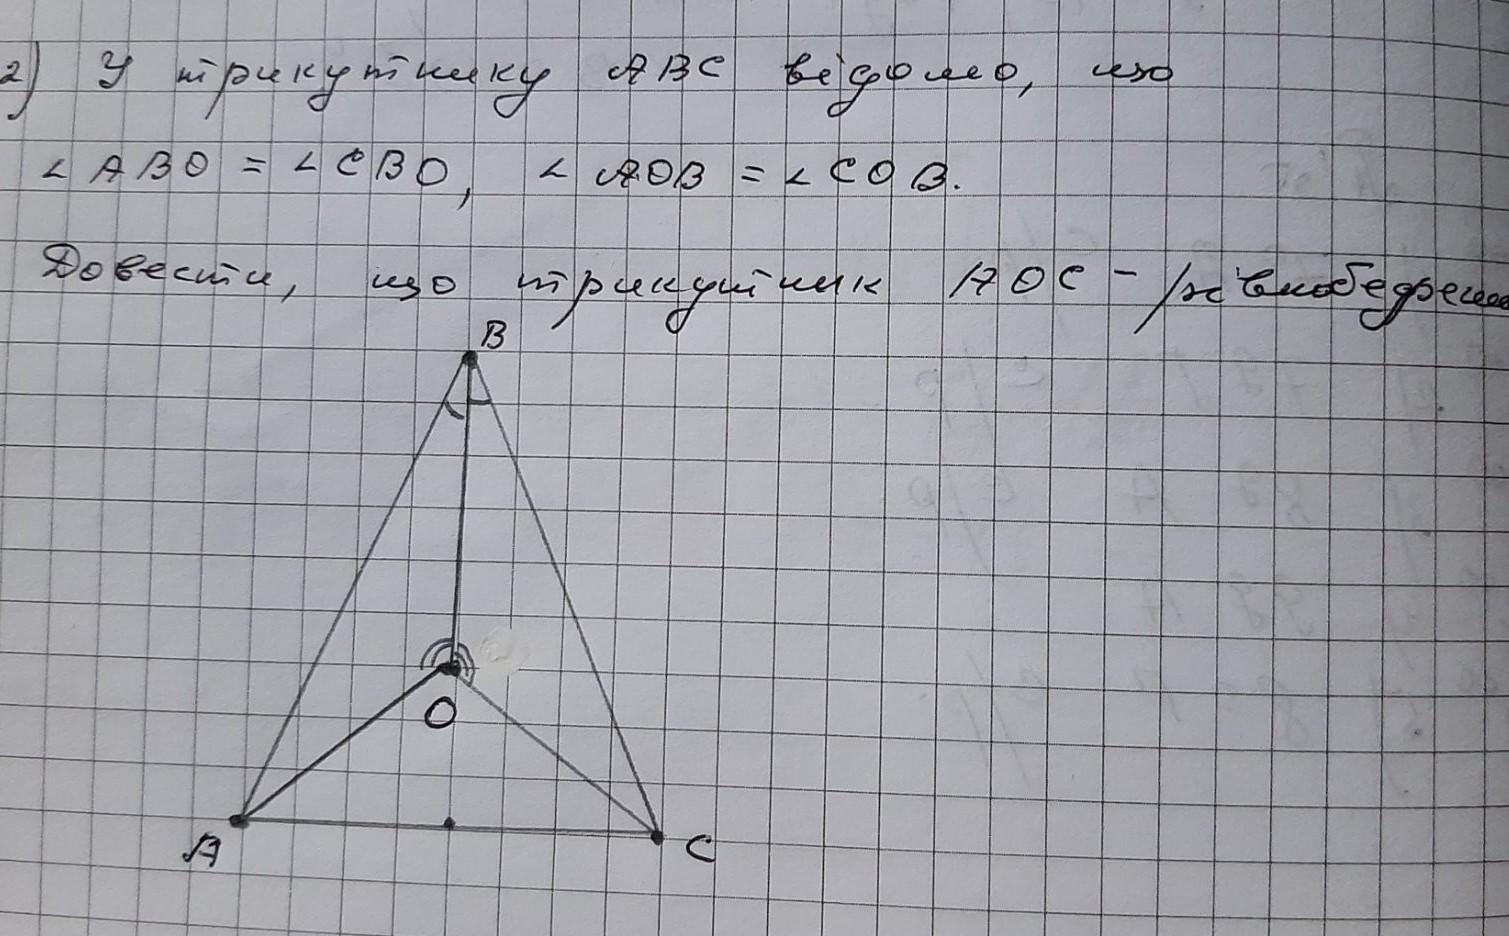 2) У трикутнику ABC відомо, що
∠ ABO = ∠ CBO, ∠ AOB = ∠ COB.
Довести, що трикутник AOC - рівнобедрений
B
O
A
C